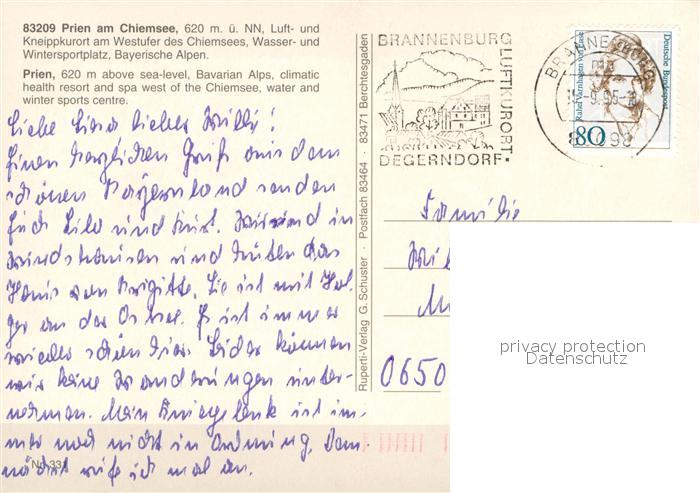 83209 Prien am Chiemsee, 620 m. ü. NN, Luft- und
Kneippkurort am Westufer des Chiemsees, Wasser- und
Wintersportplatz, Bayerische Alpen.
Prien, 620 m above sea-level, Bavarian Alps, climatic
health resort and spa west of the Chiemsee, water and
winter sports centre.
Liebe lieber Willi!
Einen herzlichen Gruß aus dem
schönen Bayernland senden
Euch Lilo und Kurt. Wir sind in
und hüten das
Haus von Brigitte. Sie ist mit Hol-
ger an der Ostsee. Es ist immer
wieder schön hier. Leider können
wir keine Wanderungen unter-
nehmen. Mein Kniegelenk ist im-
mer noch nicht in Ordnung. Dem-
nächst rufe ich mal an.
No. 331
Ruperti-Verlag G. Schuster · Postfach 83464 · 83471 Berchtesgaden
BRANNENBURG
LUFTKURORT
DEGERNDORF
BRANNENBURG
83098
Rahel Varnhagen von Ense
Deutsche Bundespost
80
Familie
0650
privacy protection
Datenschutz